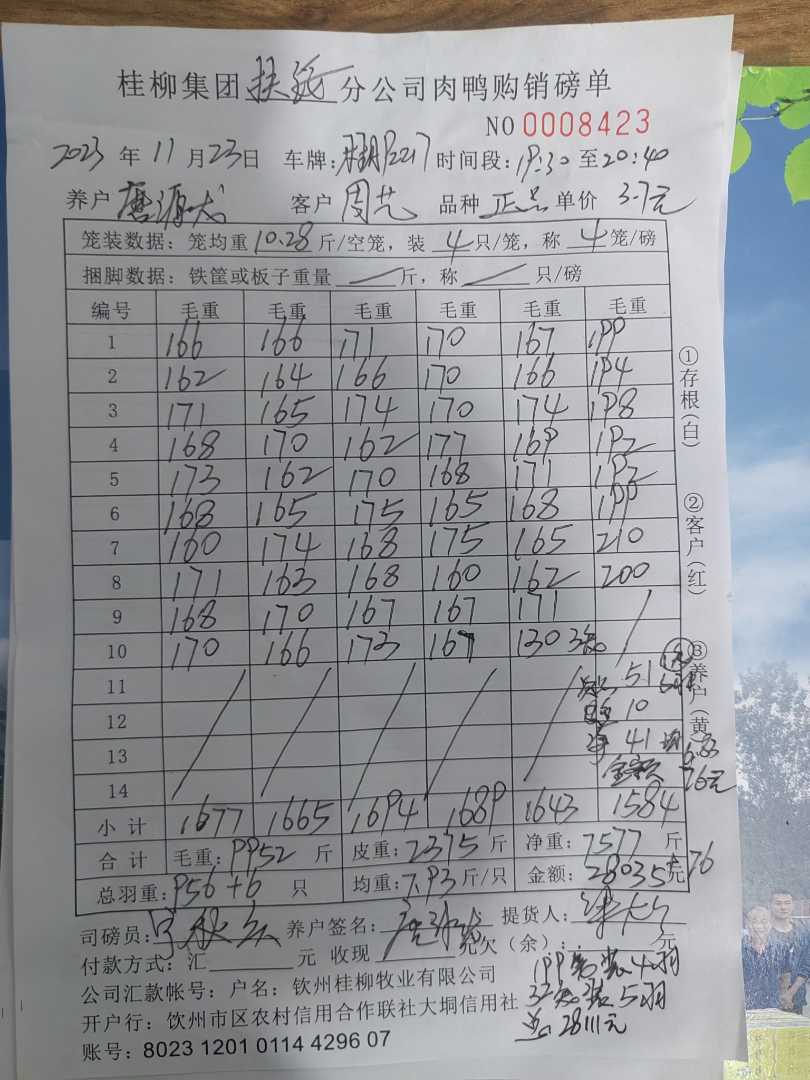 桂柳集团 分公司肉鸭购销磅单
NO 0008423
2023 年 11 月 23 日 车牌: 时间段: 19:30 至 20:40
养户 客户 周艺 品种 单价 3.7元
笼装数据: 笼均重 10.28 斤/空笼, 装 4 只/笼, 称 4 笼/磅
捆脚数据: 铁筐或板子重量 / 斤, 称 / 只/磅
编号 毛重 毛重 毛重 毛重 毛重 毛重
1 166 166 171 170 167 199
2 162 164 166 170 166 194
3 171 165 174 170 174 198
4 168 170 162 177 169 192
5 173 162 170 168 171 192
6 168 165 175 165 168 199
7 160 174 168 175 165 210
8 171 163 168 160 162 200
9 168 170 167 167 171 /
10 170 166 173 167 130 3
11 / / / / / 51
12 10
13 净 41 均 6.83
14 金额 76元
小计 1677 1665 1694 1689 1643 1584
合计 毛重: 9952 斤 皮重: 2375 斤 净重: 7577 斤
总羽重: 956+6 只 均重: 7.93 斤/只 金额: 28035元 +76
司磅员: 养户签名: 提货人:
付款方式: 汇 元 收现 元欠(余): 元
公司汇款帐号: 户名: 钦州桂柳牧业有限公司
开户行: 饮州市区农村信用合作联社大垌信用社
账号: 8023 1201 0114 4296 07
199 装 4羽
32 装 5羽
28111元
①存根(白)
②客户(红)
③养户(黄)